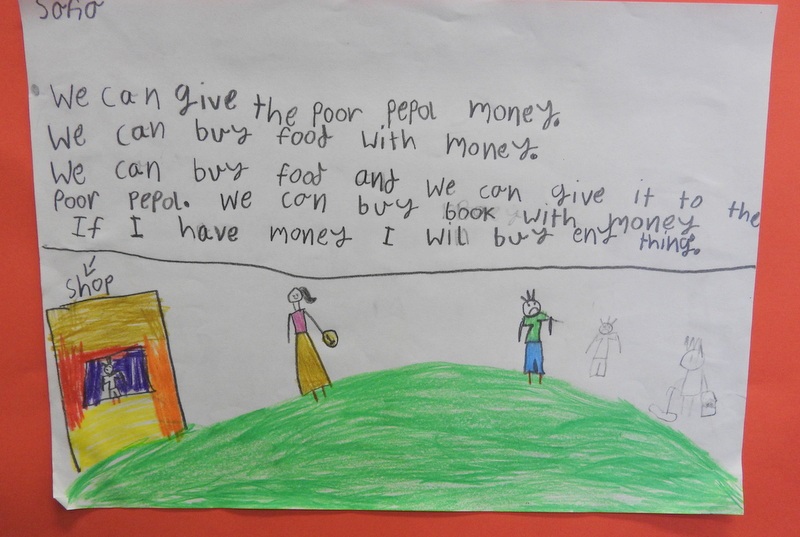 Sofia
We can give the poor pepol money.
We can buy food with money.
We can buy food and we can give it to the
poor pepol. We can buy book with money
If I have money I wil buy eny thing.
shop